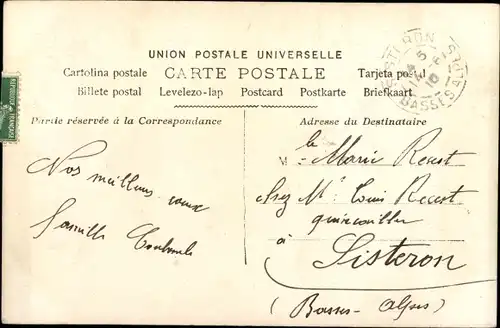 UNION POSTALE UNIVERSELLE
Cartolina postale CARTE POSTALE Tarjeta postal
Billete postal Levelezo-lap Postcard Postkarte Briefkaart
Partie réservée à la Correspondance
Adresse du Destinataire
SISTERON
BASSES ALPES
Nos meilleurs vœux
Famille
Marie
Chez Mr Louis
quincaillier
à Sisteron
(Basses-Alpes)